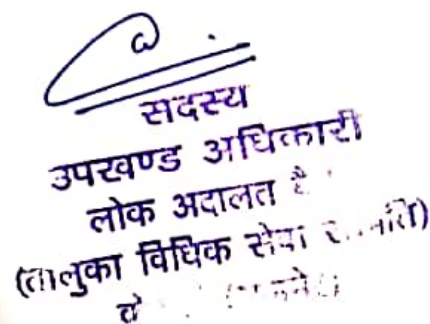 सदस्य
उपखण्ड अधिकारी
लोक अदालत
(तालुका विधिक सेवा